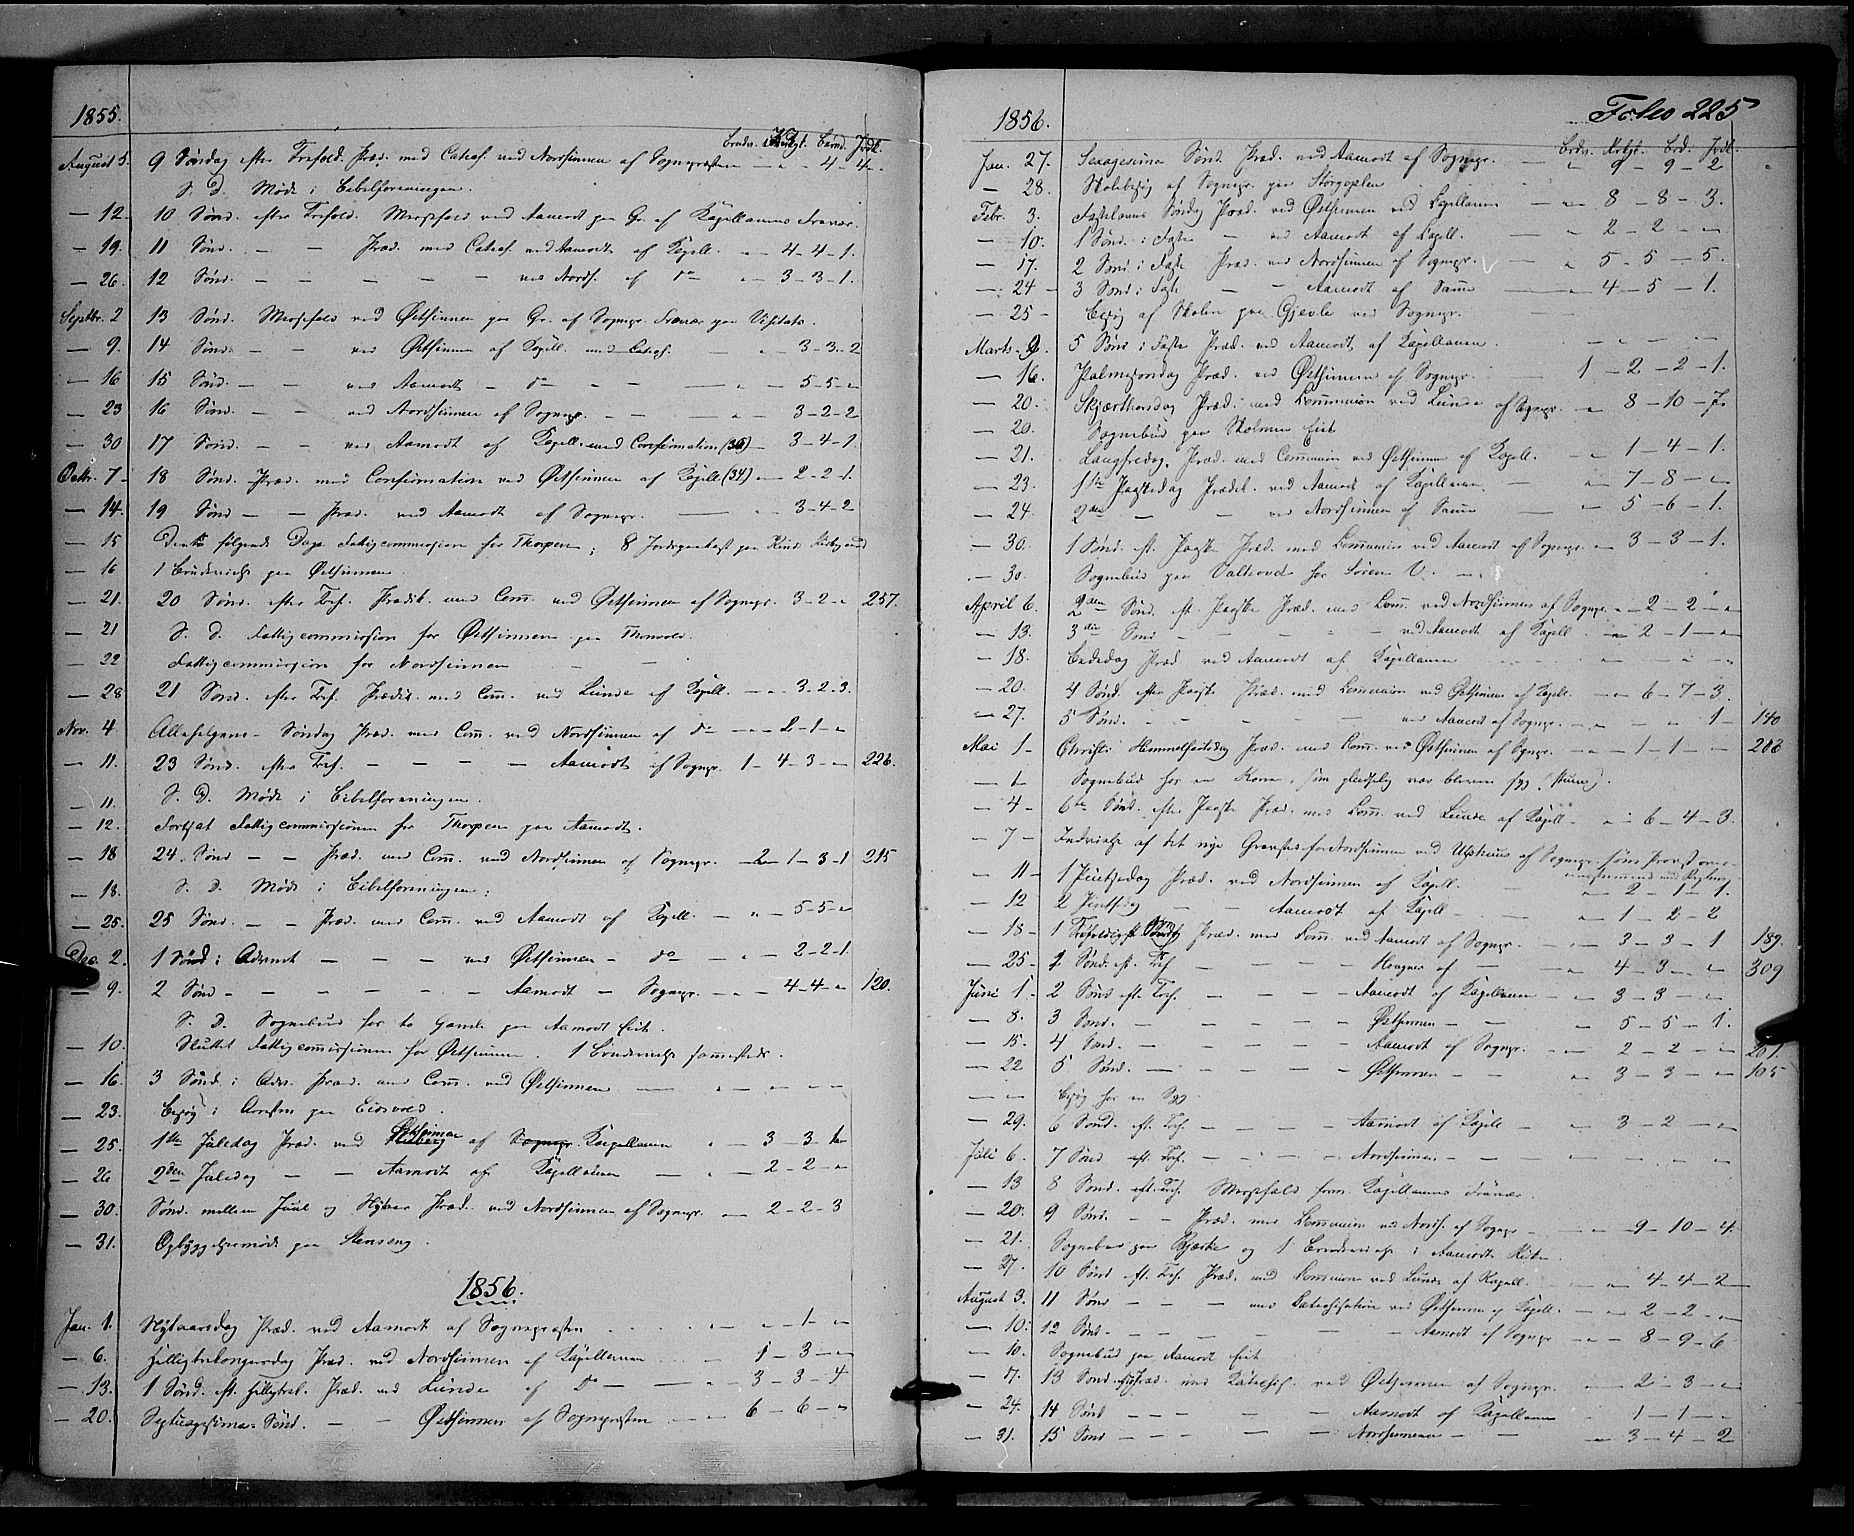 1855.
Brudv. Introd. Børnd. Jodk.
August 5. 9 Søndag efter Trefold. Præd. med Catech. ved Nordsinnen af Sognepræsten — " 4 — 4 — "
S. D. Møde i Bibelforeningen.
— 12. 10 Sønd. efter Trefold. Messefald ved Aamodt paa Gr. af Kapellanens Fravær.
— 19. 11 Sønd. — — Præd. med Catech. ved Aamodt af Kapell. — " — 4 — 4 — 1.
— 26. 12 Sønd. — — — — ved Nords. af do " 3 — 3 — 1.
Septbr. 2 13 Sønd. Messefald ved Østsinnen paa Gr. af Sognepr. Fravær paa Visitats.
— 9. 14 Sønd. — — ved Østsinnen af Kapell. med Catech. — " 3 — 3 — 2
— 16 15 Sønd. — — ved Aamodt — do — — " — 5 — 5 — "
— 23 16 Sønd. — — ved Nordsinnen af Sognepr. — — — " 3 — 2 — 2
— 30 17 Sønd. — — ved Aamodt af Kapell. med Confirmation (36) — 3 — 4 — 1.
Octbr. 7 — 18 Sønd. Præd. med Confirmation ved Østsinnen af Kapell. (34) — " — 2 — 2 — 1.
— 14. 19 Sønd — — Præd. ved Aamodt af Sognepr. — " 3 — 4 — 2
— 15 følgende Dage Fattigcommission for Thorpen; 8
— 16 1 Brudevielse paa Østsinnen.
— 21. 20 Sønd. efter Tref. Prædik. med Com. ved Østsinnen af Sognepr. 3 — 2 — " 257.
— 21 S. D. Fattigcommission for Østsinnen paa Thonvold.
— 22 Fattigcommission for Nordsinnen — —
— 28 21 Sønd. efter Tref. Prædik. med Com. ved Lunde af Kapell. — " — 3 — 2 — 3.
Nov. 4 Allehelgens-Søndag Præd. med Com. ved Nordsinnen af do — " — 2 — 1 — "
— 11. 23 Sønd. efter Tref. — — — — Aamodt af Sognepr. 1 — 4 — 3 — " 226.
— 11. S. D. Møde i Bibelforeningen.
— 12. Fortsat Fattigcommissionen for Thorpen paa Aamodt.
— 18 24. Sønd — — Præd. med Com. ved Nordsinnen af Sognepr. — 2 — 1 — 3 — 1 215
— 18. S. D. Møde i Bibelforeningen;
— 25. 25 Sønd. — — Præd. med Com. ved Aamodt af Kapell. — " — 5 — 5 — "
Dec. 2. 1 Sønd: Advent — — — ved Østsinnen — do — " — 2 — 2 — 1.
— 9. 2 Sønd — — — — — — Aamodt — Sognepr. — " — 4 — 4 — " 120.
S. D. Sognebud for to Gamle paa Aamodt Eiet.
— 10. Sluttet Fattigcommissionen for Østsinnen. 1 Brudevielse sammesteds.
— 16. 3 Sønd. i Adv. Præd. med Com. ved Østsinnen — " — " — "
— 23. Besøg i Arresten paa Eidsvold.
— 25. 1ste Juledag Præd. ved Østsinnen af Sognepr. Kapellanen " — 3 — 3 —
— 26 2den Juledag — — Aamodt af Kapellanen — " — 2 — 2 — "
— 30. Sønd. mellem Juul og Nytaar Præd. ved Nordsinnen af Sognepr. — " 2 — 2 — 3
— 31. Opbyggelsesmøde paa Stenseng.
1856.
Jan. 1. Nytaarsdag Præd. ved Aamodt af Sognepræsten . . . " — " — 1 — "
— 6. Helligtrekongersdag Præd. ved Nordsinnen af Kapellanen . . . — 1 — 3 — "
— 13. 1 Sønd. ef. Helligtrek. Præd. ved Lunde af Do — — " — 3 — 3 — 4
— 20. Septuagesima Sønd. — — Østsinnen af Sognepræsten — " 6 — 6 — "
1856. Folio 225
Brdv. Krlgt. Brd. Jodk.
Jan. 27. Sexagesima Sønd. Præd. ved Aamodt af Sognepr. — " 9 — 9 — 2
— 28. Skolebesøg af Sognepr. paa
Febr. 3. Fastelavns Søndag Præd. ved Østsinnen ved Kapellanen — " — 8 — 8 — 3.
— 10. 1 Sønd. i Faste — ved Aamodt af Kapell. — — " 2 — 2 — "
— 17. 2 Sønd i Faste Præd. ved Nordsinnen af Sognepr. — " 5 — 5 — 5.
— 24 — 3 Sønd: Faste — — Aamodt af Samme — — " 4 — 5 — 1.
— 25 — Besøg af Skolen paa Gjevle ved Sognepr. —
Marts. 9. 5 Sønd i Faste Præd. ved Aamodt, af Kapellanen. — " — " — "
— 16. Palmesøndag Præd. ved Østsinnen af Sognepr. 1 — 2 — 2 — 1.
— 20. Skjærthorsdag Præd. med Communion ved Lunde af Sognepr. " 8 — 10 — 7
— 20. Sognebud paa Eiet
— 21. Langfredag. Præd. med Communion ved Østsinnen af Kapell. — " — 1 — 4 — 1.
— 23. 1ste Paaskedag Prædik. ved Aamodt af Kapellanen — " — 7 — 8 — "
— 24. 2den — — ved Nordsinnen af Samme — " — 5 — 6 — 1.
— 30. 1 Sønd. ef. Paaske Præd. med Communion ved Aamodt af Sognepr. — " 3 — 3 — 1.
— 30. Sognebud paa for Søren
April 6. 2den Sønd. ef. Paaske Præd. med Com. ved Nordsinnen af Sognepr. — " — 2 — 2 — "
— 13. 3die Sønd — — — — ved Aamodt af Kapell — " — 2 — 1 — "
— 18. Bededag Præd ved Aamodt af Kapellanen — " — " — "
— 20. 4 Sønd. efter Paaske Præd. med Communion ved Østsinnen af Kapell. — " — 6 — 7 — 3.
— 27. 5 Sønd. — — — — ved Aamodt af Sognepr. — " — " — " 1 — 140
Mai 1 — Christi Himmelfartsdag Præd. med Kom. ved Østsinnen af Sognpr. — " — 1 — 1 — " 288
— 1 Sognebud for en Kone, som var bleven syg
— 4 — 6te Sønd. efter Paaske Præd. med Kom. ved Lunde af Kapell. — " — 6 — 4 — 3.
— 7 — Indvielse af det nye Gravsted for Nordsinnen ved Ulshuus af Sognepr.
— 11 — 1 Pintsedag Præd. ved Nordsinnen af Kapell. — " 2 — 1 — 1.
— 12 2 Pintsdg — — Aamodt af Kapell — " — 1 — 2 — 2
— 18 — 1 Præd. med Kom. ved Aamodt af Sognepr. — " 3 — 3 — 1 189.
— 25 — 1 Sønd. ef. Tref — — — — af — — " 4 — 3 — " 309
Juni 1 — 2 Sønd ef. Tref. — — — — Aamodt af Kapellanen — " 3 — 3 — "
— 8. 3 Sønd. — — — — Østsinnen — — " 5 — 5 — 1.
— 15. 4 Sønd. — — — — Aamodt af Sognepr. — " — 2 — 2 — " 201.
— 22 5 Sønd. — — — — Østsinnen — — " — 3 — 3 — " 105
— " Besøg hos en Syg.
— 29. 6 Sønd. ef. Tref. — — — — Aamodt af Kapell — " — 3 — 2 — "
Juli 6. 7 Sønd ef. Tref. — — — — Nordsinnen — " — " — "
— 13 8 Sønd. ef. Tref. Messefald form. Kapellanens Fravær
— 20. 9 Sønd. — — Præd. med Communion ved Nords. af Sognepr — " — 9 — 10 — 4.
— 21. Sognebud paa Bjerke og 1 Brudevielse i Aamodts Kirke.
— 27. 10 Sønd ef. Tref. Præd. med Communion ved Lunde af Kapell. — " — 4 — 4 — 2
August 3. 11 Sønd — — — med Katechisation ved Østsinnen af Kapell. — " — 2 — 2 — "
— 10. 12 Sønd. — — — — Aamodt af Sognepr — " — 8 — 9 — 6
— 10. Sognebud paa Aamodt Eiet
— 17. 13 Sønd. Præd. med Katechis. ved Østsinnen af Sognepr. — " — 2 — 3 — "
— 24. 14 Sønd — — — — Aamodt af Kapellanen — " 1 — 1 — "
— 31. 15 Sønd — — — — Nordsinnen — — " 3 — 4 — 2